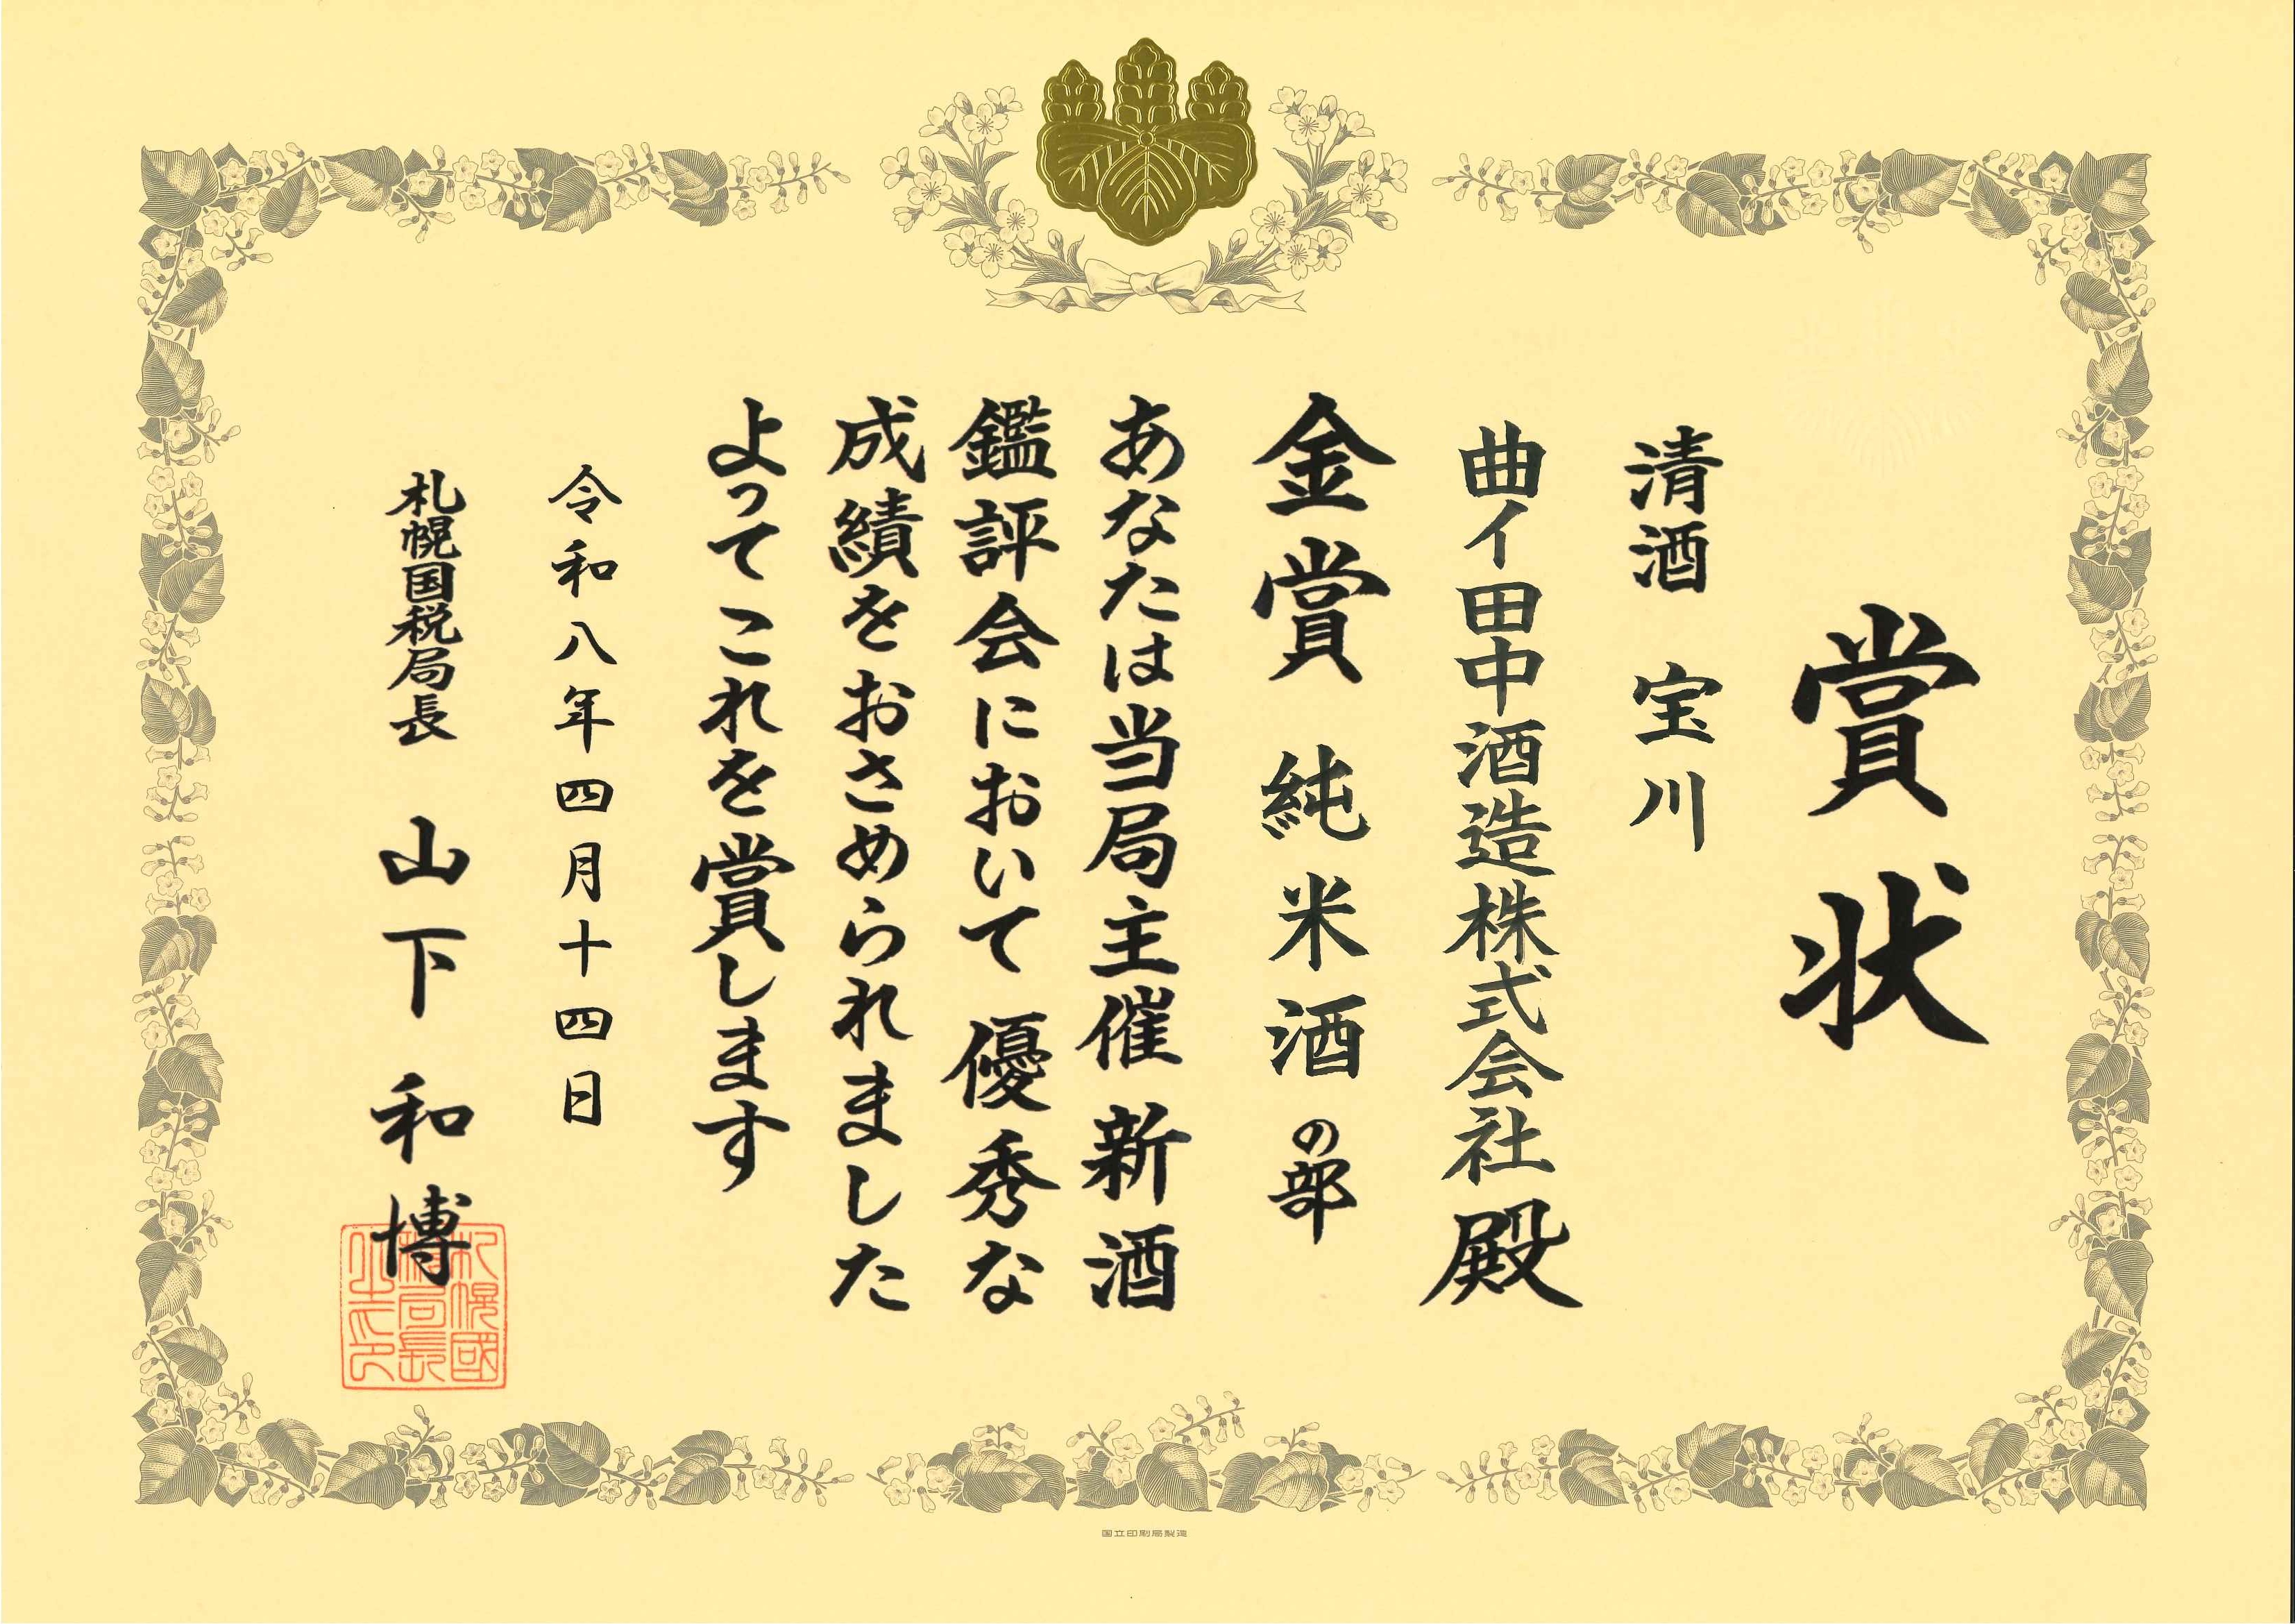 賞状
清酒 宝川
曲イ田中酒造株式会社殿
金賞 純米酒の部
あなたは当局主催新酒
鑑評会において優秀な
成績をおさめられました
よってこれを賞します
令和八年四月十四日
札幌国税局長 山下和博
札幌國
税局長
之印
国立印刷局製造